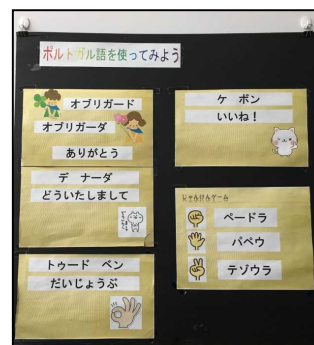 ポルトガル語を使ってみよう
オブリガード
オブリガーダ
ありがとう
デ ナーダ
どういたしまして
トゥード ベン
だいじょうぶ
ケ ボン
いいね！
じゃんけんゲーム
ペードラ
パペウ
テゾウラ